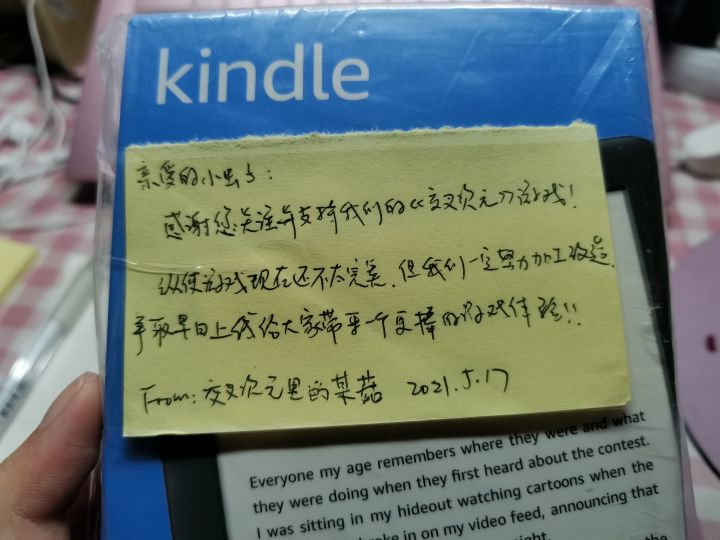 kindle
亲爱的小虫与：
感谢您关注并支持我们的《交叉次元》游戏！
纵使游戏现在还不太完美，但我们一定努力加工改造，
争取早日上线给大家带来一个更棒的游戏体验！！
From：交叉次元里的某菇 2021.5.17
Everyone my age remembers where they were and what
they were doing when they first heard about the contest.
I was sitting in my hideout watching cartoons when the
broke in on my video feed, announcing that
the